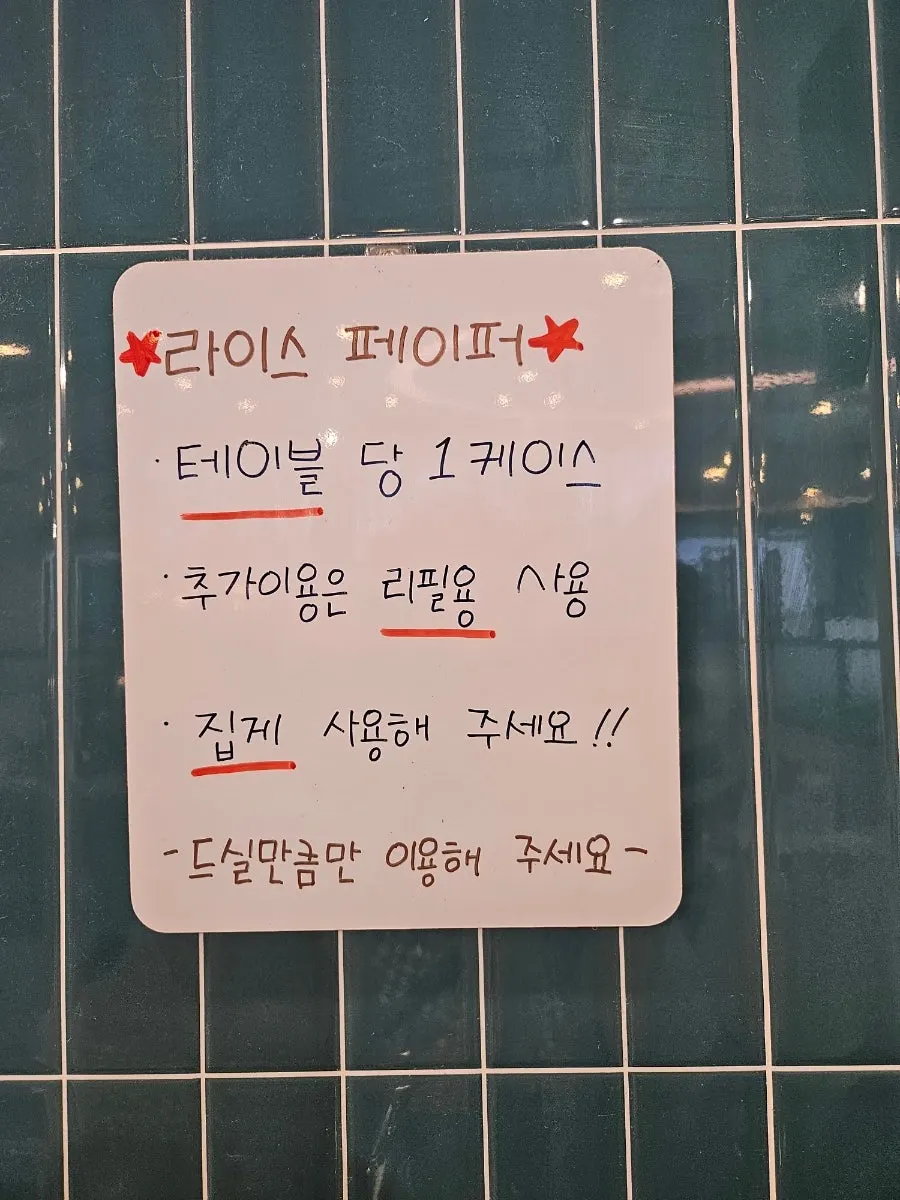 ★라이스 페이퍼★
· 테이블 당 1케이스
· 추가이용은 리필용 사용
· 집게 사용해 주세요!!
- 드실만큼만 이용해 주세요 -